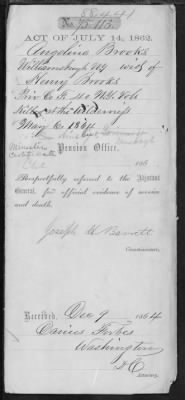 No 75,113
ACT OF JULY 14, 1862.
Angelina Brooks
Williamsburgh NY wid of
Henry Brooks
Priv Co 40 NY Vols
Killed at the Wilderness
May 6 1864
Pension Office,
186
Respectfully referred to the Adjutant
General, for official evidence of service
and death.
Joseph H Barrett
Commissioner.
Received, Dec 9 1864
Washington
D C
Attorney.